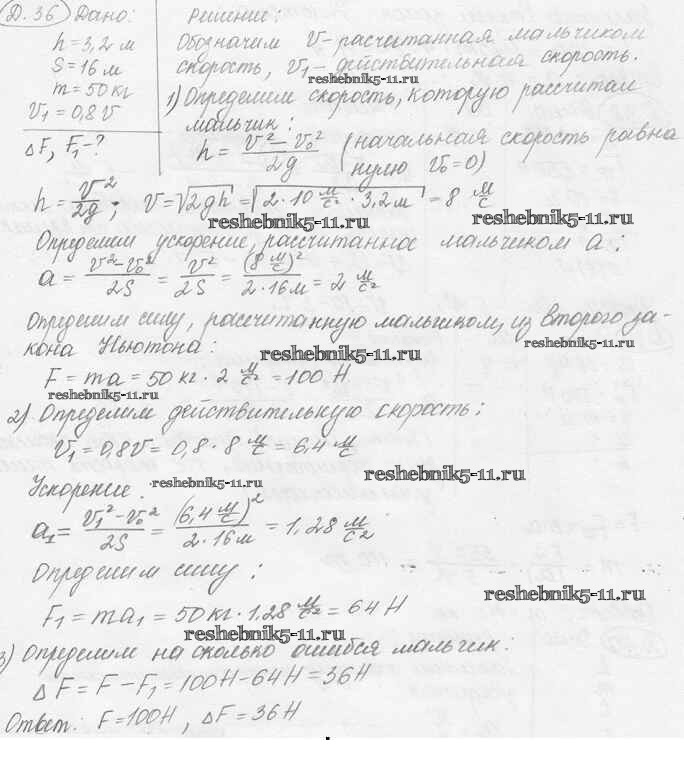 Д.36 Дано: Решение:
h = 3,2 м Обозначим V - расчитанная мальчиком
S = 16 м скорость, V₁ - действительная скорость.
reshebnik5-11.ru
m = 50 кг 1) Определим скорость, которую рассчитал
V₁ = 0,8 V мальчик:
ΔF, F₁ - ? h = (V² - V₀²)/2g (начальная скорость равна
нулю V₀ = 0)
h = V²/2g ; V = √2gh = √2 · 10 м/с² · 3,2 м = 8 м/с
reshebnik5-11.ru reshebnik5-11.ru
Определим ускорение, рассчитанное мальчиком a :
a = (V² - V₀²)/2S = V²/2S = (8 м/с)²/(2 · 16 м) = 2 м/с²
Определим силу, рассчитанную мальчиком, из второго за-
reshebnik5-11.ru
кона Ньютона:
reshebnik5-11.ru
F = ma = 50 кг · 2 м/с² = 100 Н
reshebnik5-11.ru
2) Определим действительную скорость:
V₁ = 0,8V = 0,8 · 8 м/с = 6,4 м/с
reshebnik5-11.ru
Ускорение.
reshebnik5-11.ru
a₁ = (V₁² - V₀²)/2S = (6,4 м/с)²/(2 · 16 м) = 1,28 м/с²
Определим силу :
reshebnik5-11.ru
F₁ = ma₁ = 50 кг · 1,28 м/с² = 64 Н
reshebnik5-11.ru
3) Определим на сколько ошибся мальчик:
ΔF = F - F₁ = 100Н - 64Н = 36Н
Ответ: F = 100Н , ΔF = 36Н